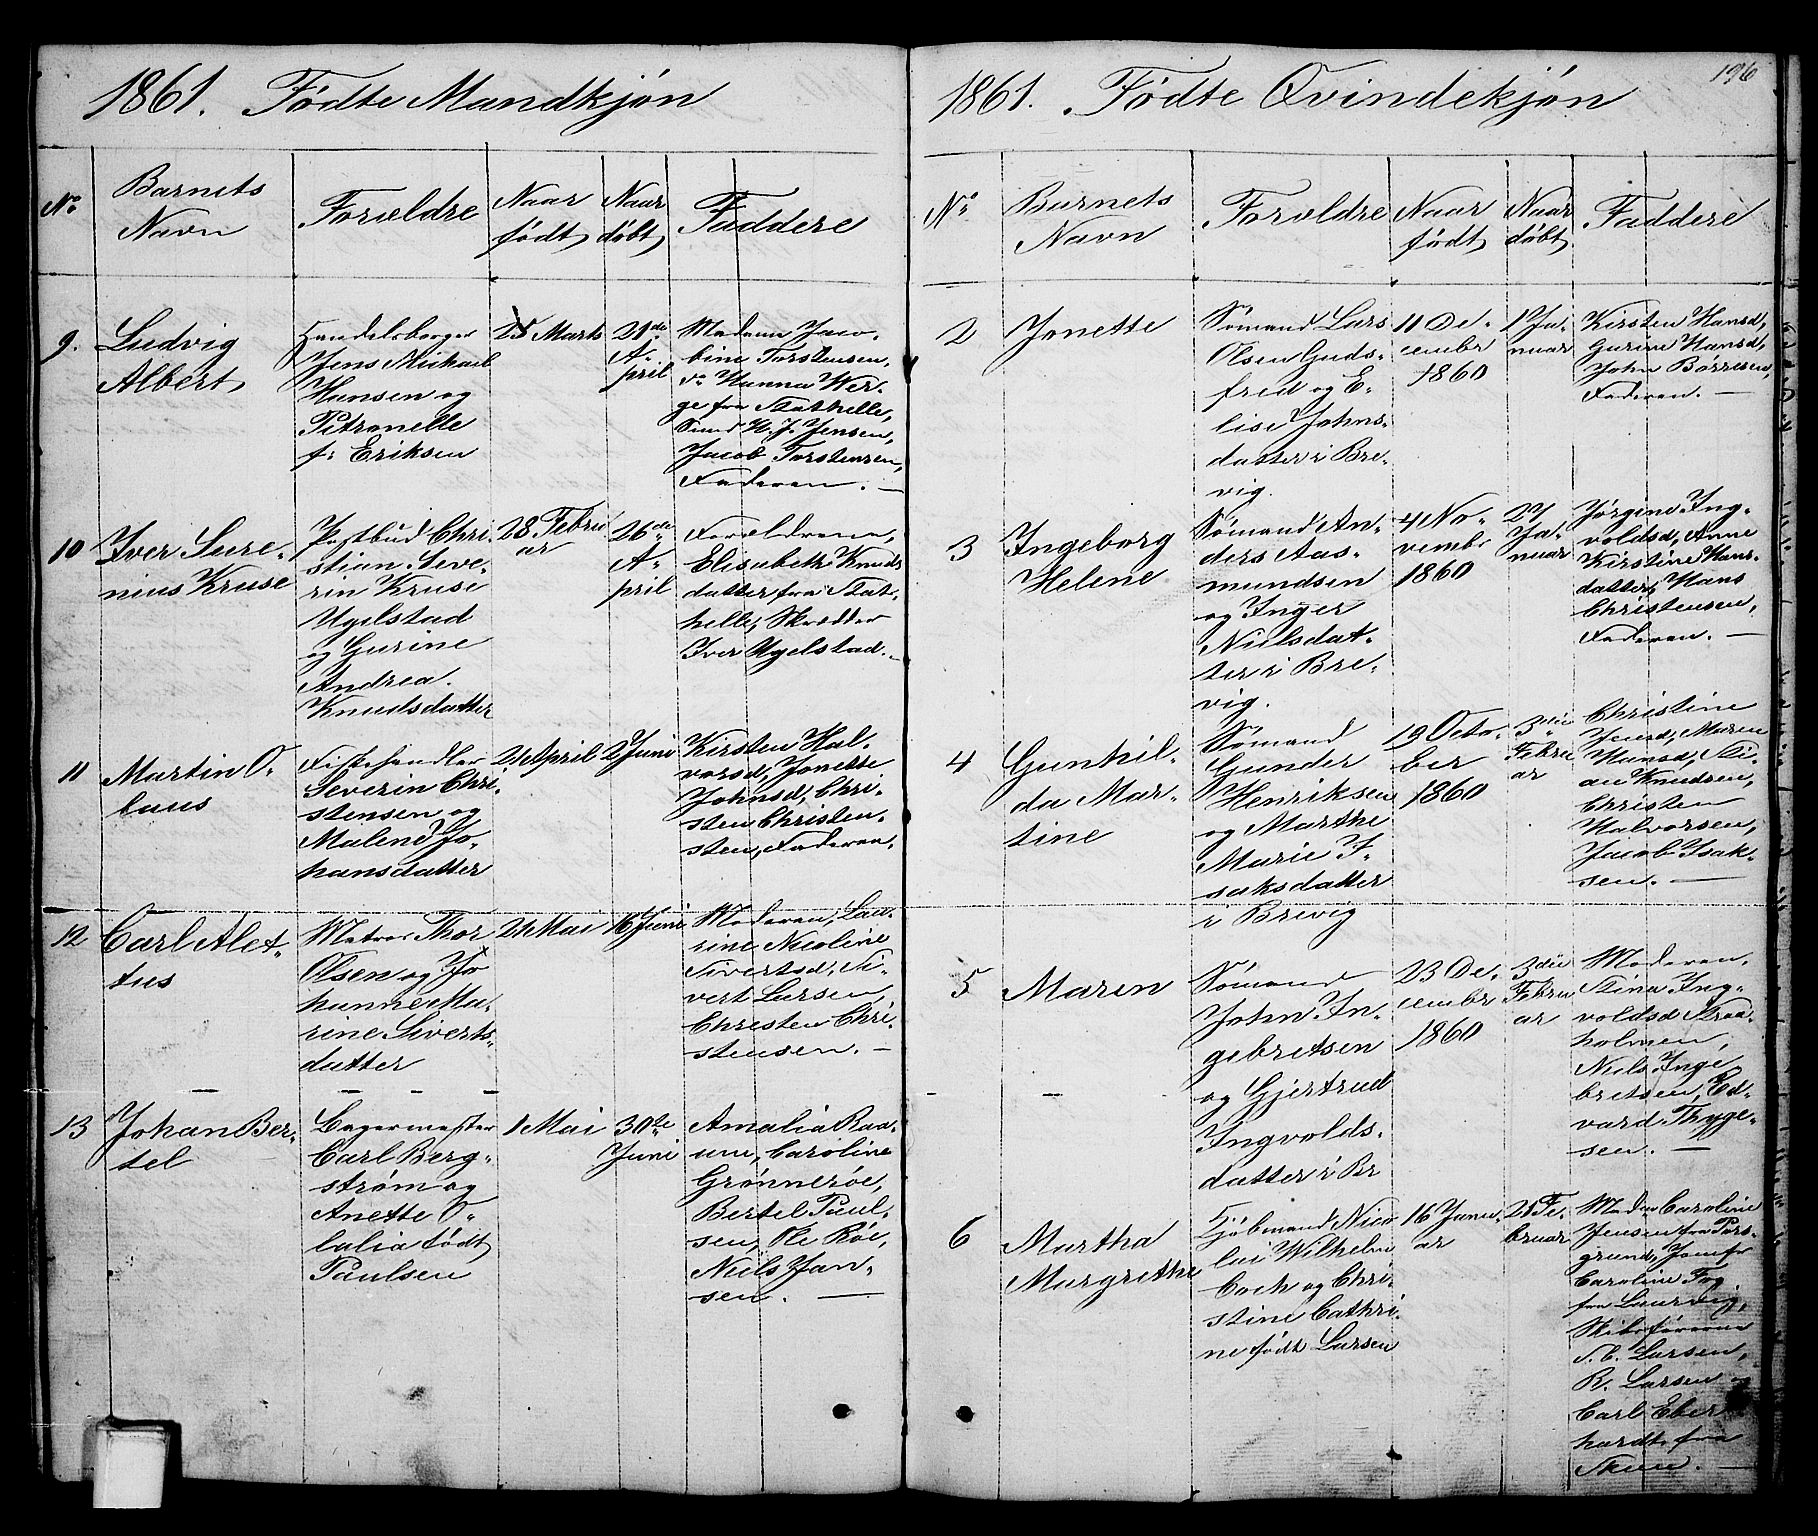 1861. Fødte Mandkjøn
No.
Barnets
Navn
Forældre
Naar
født
Naar
døbt
Faddere
9.
Ludvig
Albert
Handelsborger
Jens Michael
Hansen og
Petronelle
f. Eriksen
25 Marts
21de
A-
pril
Madam Jaco-
bine Torstensen,
do Hanna Wer-
ge fra Stathelle,
H. J. Jensen,
Jacob Torstensen,
Faderen. —
10
Iver Sure-
nius Kruse
Postbud Chri-
stian Seve-
rin Kruse
Ugelstad
og Gurine
Andrea
Knudsdatter
28 Febru
ar
26de
A-
pril
Forældrene,
Elisabeth Knuds
datter fra Stat-
helle, Skrædder
Iver Ugelstad. —
11
Martin O-
laus
Fiskehandler
Severin Chri-
stensen og
Malene Jo-
hansdatter
21 April
2 Juni
Kirsten Hal-
vorsd, Jonette
Johnsd, Chri-
sten Christen-
sen, Faderen.
12
Carl Alet-
tus
Matros Thor
Olsen og Jo
hanne Ma-
rine Siverts-
datter
21 Mai
16 Juni
Moderen, Lau-
rine Nicoline
Sivertsd, Si-
vert Larsen,
Christen Chri-
stensen. —
13
Johan Ber-
tel
Lagermester
Carl Berg-
strøm og
Anette O-
lalia født
Paulsen
1 Mai
30te
Juni
Amalia Raa-
um, Caroline
Grønnerøe,
Bertel Paul-
sen, Ole Røe,
Niels Jan-
sen. —
196
1861. Fødte Qvindekjøn
No.
Barnets
Navn
Forældre
Naar
født
Naar
døbt
Faddere
2
Jonette
Sømand Lars
Olsen Guds-
fred og E-
lise Johns-
datter i Bre-
vig.
11 De-
cembr
1860
1 Ja-
nuar
Kirsten Hansd,
Gurine Hansd,
John Børresen,
Faderen. —
3
Ingeborg
Helene
Sømand An-
ders Aas-
mundsen
og Inger
Nielsdat-
ter i Bre-
vig.
4 No-
vembr
1860
27
Ja-
nuar
Jørgine Ing-
voldsd, Anne
Kirstine Hans-
datter, Hans
Christensen,
Faderen. —
4
Gunhil-
da Mar-
tine
Sømand
Gunder
Henriksen
og Marthe
Marie I-
saksdatter
i Brevig
19 Octo-
ber
1860
3die
Febru
ar
Christine
Jensd, Maren
Hansd, Sti-
an Knudsen,
Christen
Halvorsen,
Jacob Isak-
sen. —
5
Maren
Sømand
John In-
gebretsen
og Gjertrud
Ingvolds-
datter i Br
23 De-
cembr
1860
3die
Febru
ar
Moderen,
Stina Ing-
voldsd Straa-
holmen,
Niels Inge
bretsen, Ed-
vard Thyge-
sen. —
6
Martha
Margrethe
Kjøbmand Nico
lai Wilhelm
Coch og Chri-
stine Cathri-
ne født Larsen
16 Janu-
ar
21 Fe-
bruar
Madm Caroline
Jensen fra Pors-
grund, Jomfr
Caroline Fog
fra Laurvig,
Skibsførerne
S. C. Larsen,
R. Larsen og
Carl Eber
hardt, fra
Skien. —